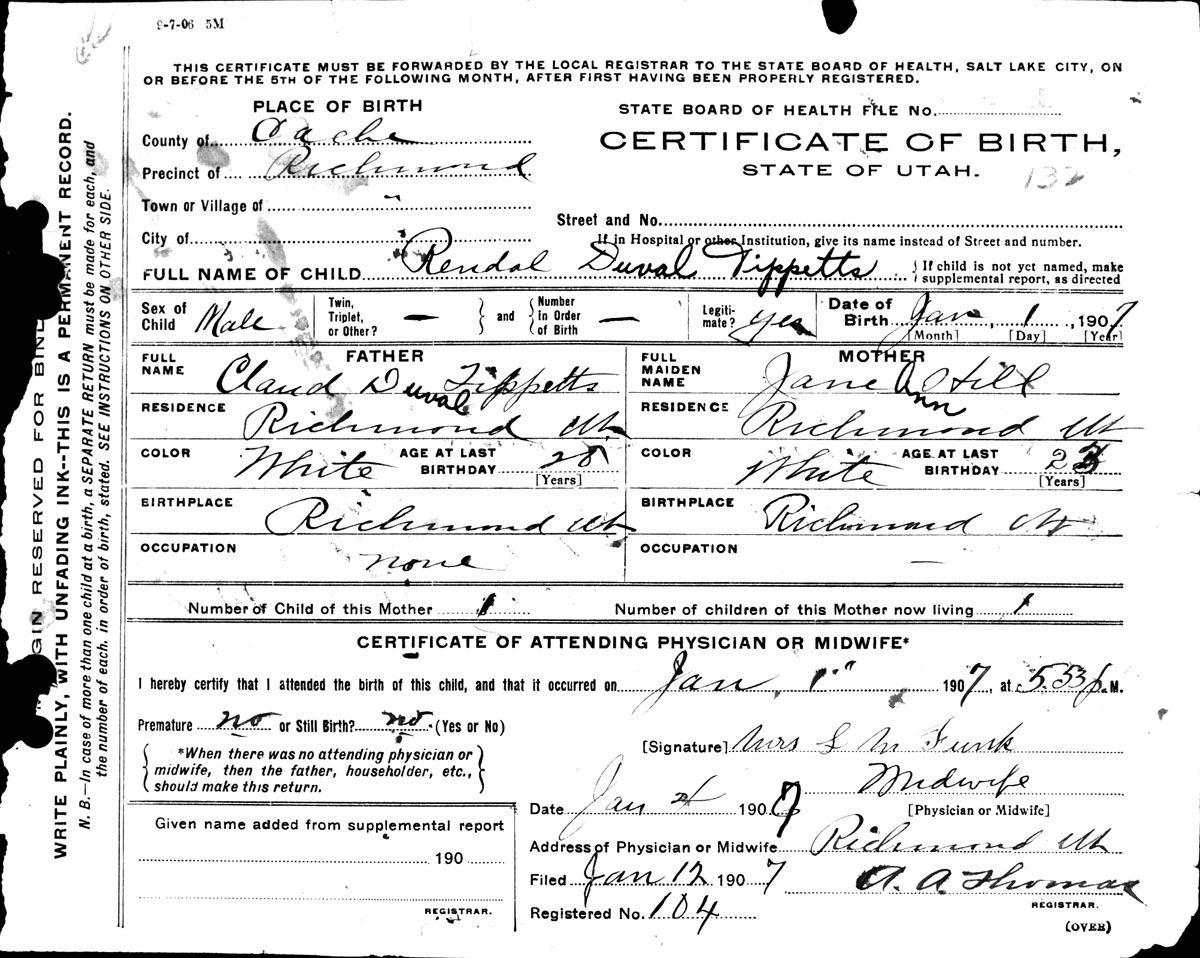 9-7-06 5M
THIS CERTIFICATE MUST BE FORWARDED BY THE LOCAL REGISTRAR TO THE STATE BOARD OF HEALTH, SALT LAKE CITY, ON
OR BEFORE THE 5TH OF THE FOLLOWING MONTH, AFTER FIRST HAVING BEEN PROPERLY REGISTERED.
PLACE OF BIRTH
County of Cache
Precinct of Richmond
Town or Village of "
City of
STATE BOARD OF HEALTH FILE No.
CERTIFICATE OF BIRTH,
STATE OF UTAH.
132
Street and No.
If in Hospital or other Institution, give its name instead of Street and number.
FULL NAME OF CHILD Rendal Duval Tippetts { If child is not yet named, make
supplemental report, as directed
Sex of Child Male
Twin, Triplet, or Other? — } and { Number in Order of Birth —
Legiti-mate? yes
Date of Birth Jan, 1, 1907
[Month] [Day] [Year]
FATHER
FULL NAME Claud Duval Tippetts
RESIDENCE Richmond Ut
COLOR White AGE AT LAST BIRTHDAY 28
[Years]
BIRTHPLACE Richmond Ut
OCCUPATION none
MOTHER
FULL MAIDEN NAME Jane Ann Hill
RESIDENCE Richmond Ut
COLOR White AGE AT LAST BIRTHDAY 23
[Years]
BIRTHPLACE Richmond Ut
OCCUPATION —
Number of Child of this Mother 1 Number of children of this Mother now living 1
CERTIFICATE OF ATTENDING PHYSICIAN OR MIDWIFE*
I hereby certify that I attended the birth of this child, and that it occurred on Jan, 1" 1907, at 5.53 p.M.
Premature no or Still Birth? no (Yes or No)
{ *When there was no attending physician or
midwife, then the father, householder, etc.,
should make this return. }
[Signature] Mrs L M Funk
Midwife
[Physician or Midwife]
Date Jan 1907
Address of Physician or Midwife Richmond Ut
Filed Jan 12 1907 A. A. Thomas
REGISTRAR.
Registered No. 104
(OVER)
Given name added from supplemental report
190
REGISTRAR.
MARGIN RESERVED FOR BIND
WRITE PLAINLY, WITH UNFADING INK--THIS IS A PERMANENT RECORD.
N. B.—In case of more than one child at a birth, a SEPARATE RETURN must be made for each, and
the number of each, in order of birth, stated. SEE INSTRUCTIONS ON OTHER SIDE.